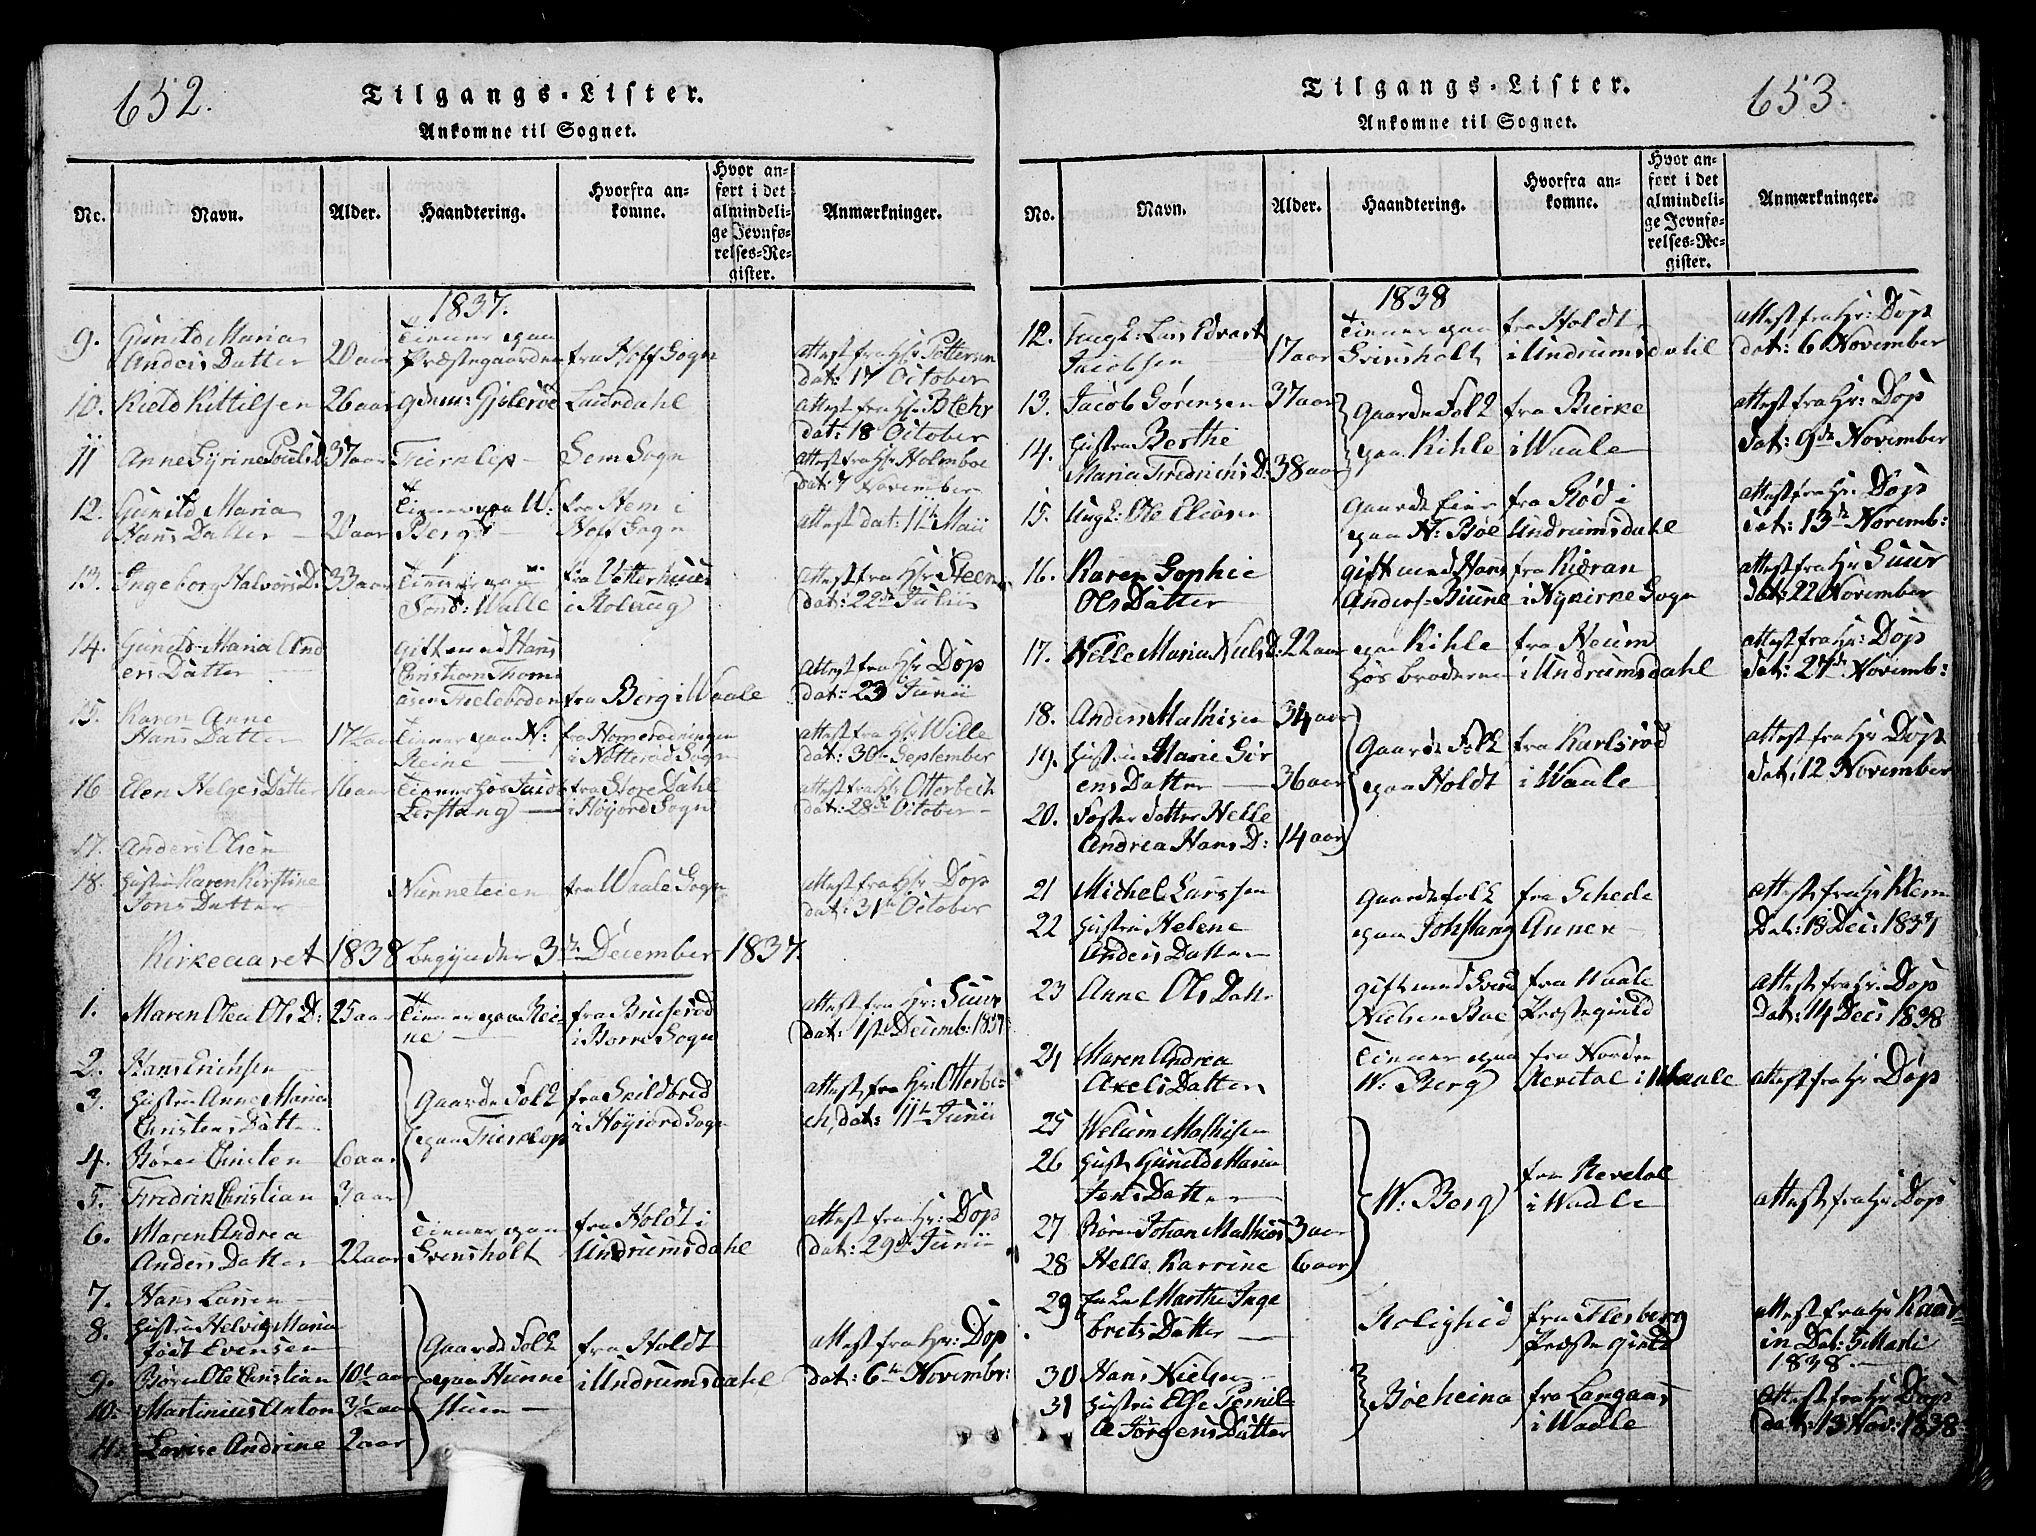 652.
Tilgangs-Lister.
Ankomne til Sognet.
No. Navn. Alder. Haandtering. Hvorfra ankomne. Hvor anført i det almindelige Jevnførelses-Register. Anmærkninger.
1837.
9. Gunild Maria Anders Datter 20 aar Tiener paa Præstegaarden fra Hoff Sogn attest fra Hr: dat: 17 October
10. Kield Kittilsen 26 aar Laurdahl attest fra Hr: Blehr dat: 18 October
11 Anne Syrine Pouls D 37 aar Sem Sogn attest fra Hr: Holmboe dat: 7 November
12. Gunild Maria Hans Datter Tiener paa W: Berg fra Hem i Hoff Sogn attest dat: 11te Maii
13. Ingeborg Halvors D. 33 aar Tiener paa Sond: Walle i Ramnæs attest fra Hr: Steen dat: 22de Julii
14. Gunild Maria Anders Datter gift med Hans Christian Thomasen fra Berg i Waale attest fra Hr: Døp dat: 23 Junii
15. Karen Anne Hans Datter 17½ aar Tiener paa N: Reine i Nøtterød Sogn attest fra Hr: Wille dat: 30te September
16 Elen Helges Datter 16 aar Tiener hos Lerstang fra Store Dahl i Høyjord Sogn attest fra Hr: Otterbech dat: 28de October
17. Anders Olsen
18. Hustru Karen Kirstine Jons Datter Nunneteien fra Waale Sogn attest fra Hr: Døp dat: 31te October
Kirkeaaret 1838 begynder 3de December 1837.
1. Maren Olea Ols D: 25 aar Tiener paa Reine fra Bruserød i Borre Sogn attest fra Hr: Suur dat: 1ste Decemb: 1837
2. Hans Erichsen
3. Hustru Anne Maria Christens Datter Gaarde Folk paa fra Skildbred i Høyjord Sogn attest fra Hr: Otterbech, dat: 11te Junii
4. Børn Christen 6 aar
5. Fredrik Christian 3 aar
6. Maren Andrea Anders Datter 22 aar Tiener paa Svensholt fra Holdt i Undrumsdahl attest fra Hr: Døp dat: 29de Junii
7. Hans Larsen
8. Hustru Helvig Maria Evensen Gaarde Folk paa Hunnestuen fra Holdt i Undrumsdahl attest fra Hr: Døp dat: 6te November:
9. Børn Ole Christian 10½ aar
10. Martinius Anton 3½ aar
11. Lovise Andrine 2 aar
653.
Tilgangs-Lister.
Ankomne til Sognet.
No. Navn. Alder. Haandtering. Hvorfra ankomne. Hvor anført i det almindelige Jevnførelses-Register. Anmærkninger.
1838
12. Ungk: Lars Edvart Jacobsen 17 aar Tiener paa Svensholt fra Holdt i Undrumsdahl attest fra Hr: Døp dat: 6 November
13. Jacob Sørensen 37 aar Gaarde Folk paa Kihle fra Bierke i Waale attest fra Hr: Døp dat: 9de November
14. Hustru Berthe Maria Fredrichs D: 38 aar
15. Ungk: Ole Eliasen Gaarde Eier paa N: Bøe fra Rød i Undrumsdahl attest fra Hr: Døp dat: 13de Novemb:
16. Karen Sophie Ols Datter gift med Hans Anders: fra i Nykirke Sogn attest fra Hr Suur dat: 22 November
17. Nelle Maria Niels D: 22 aar paa Kihle hos Broderne fra Neum i Undrumsdahl attest fra Hr: Døp dat: 27de Novemb:
18. Anders Mathisen 34 aar
19. Hustru Marie Sørens Datter 36 aar Gaarde Folk paa Holdt fra Karlsrød i Waale attest fra Hr Døp dat: 12 November
20. Foster Datter Nelle Andrea Hans D: 14 aar
21 Michel Larssen
22 Hustru Helene Anders Datter Gaardefolk paa Johstang fra Schede Annex attest fra Hr Klem Dat: 13 Dec: 1837
23 Anne Ols Datter gift med Nielsen Bøe fra Waale Præstegield attest fra Hr: Døp Dat: 14 Dec: 1838
24 Maren Andrea Axels Datter Tiener paa W: Berg fra Nordre Revetal i Waale attest fra Hr Døp
25 Welum Mathisen
26 Hust: Gunild Maria Jens Datter W: Berg fra Revetal i Waale attest fra Hr Døp
27 Børn Johan Mathias 3 aar
28 Nelle Karrine 6 aar
29 Marthe Ingebrets Datter Rolighed fra Flesberg Præstegield attest fra Hr in Dat: 1838.
30 Hans Nielsen
31 Hustru Else Pernille Jørgens Datter Bøeheina fra Langaas i Waale attest fra Hr Døp dat: 13 Nov: 1838